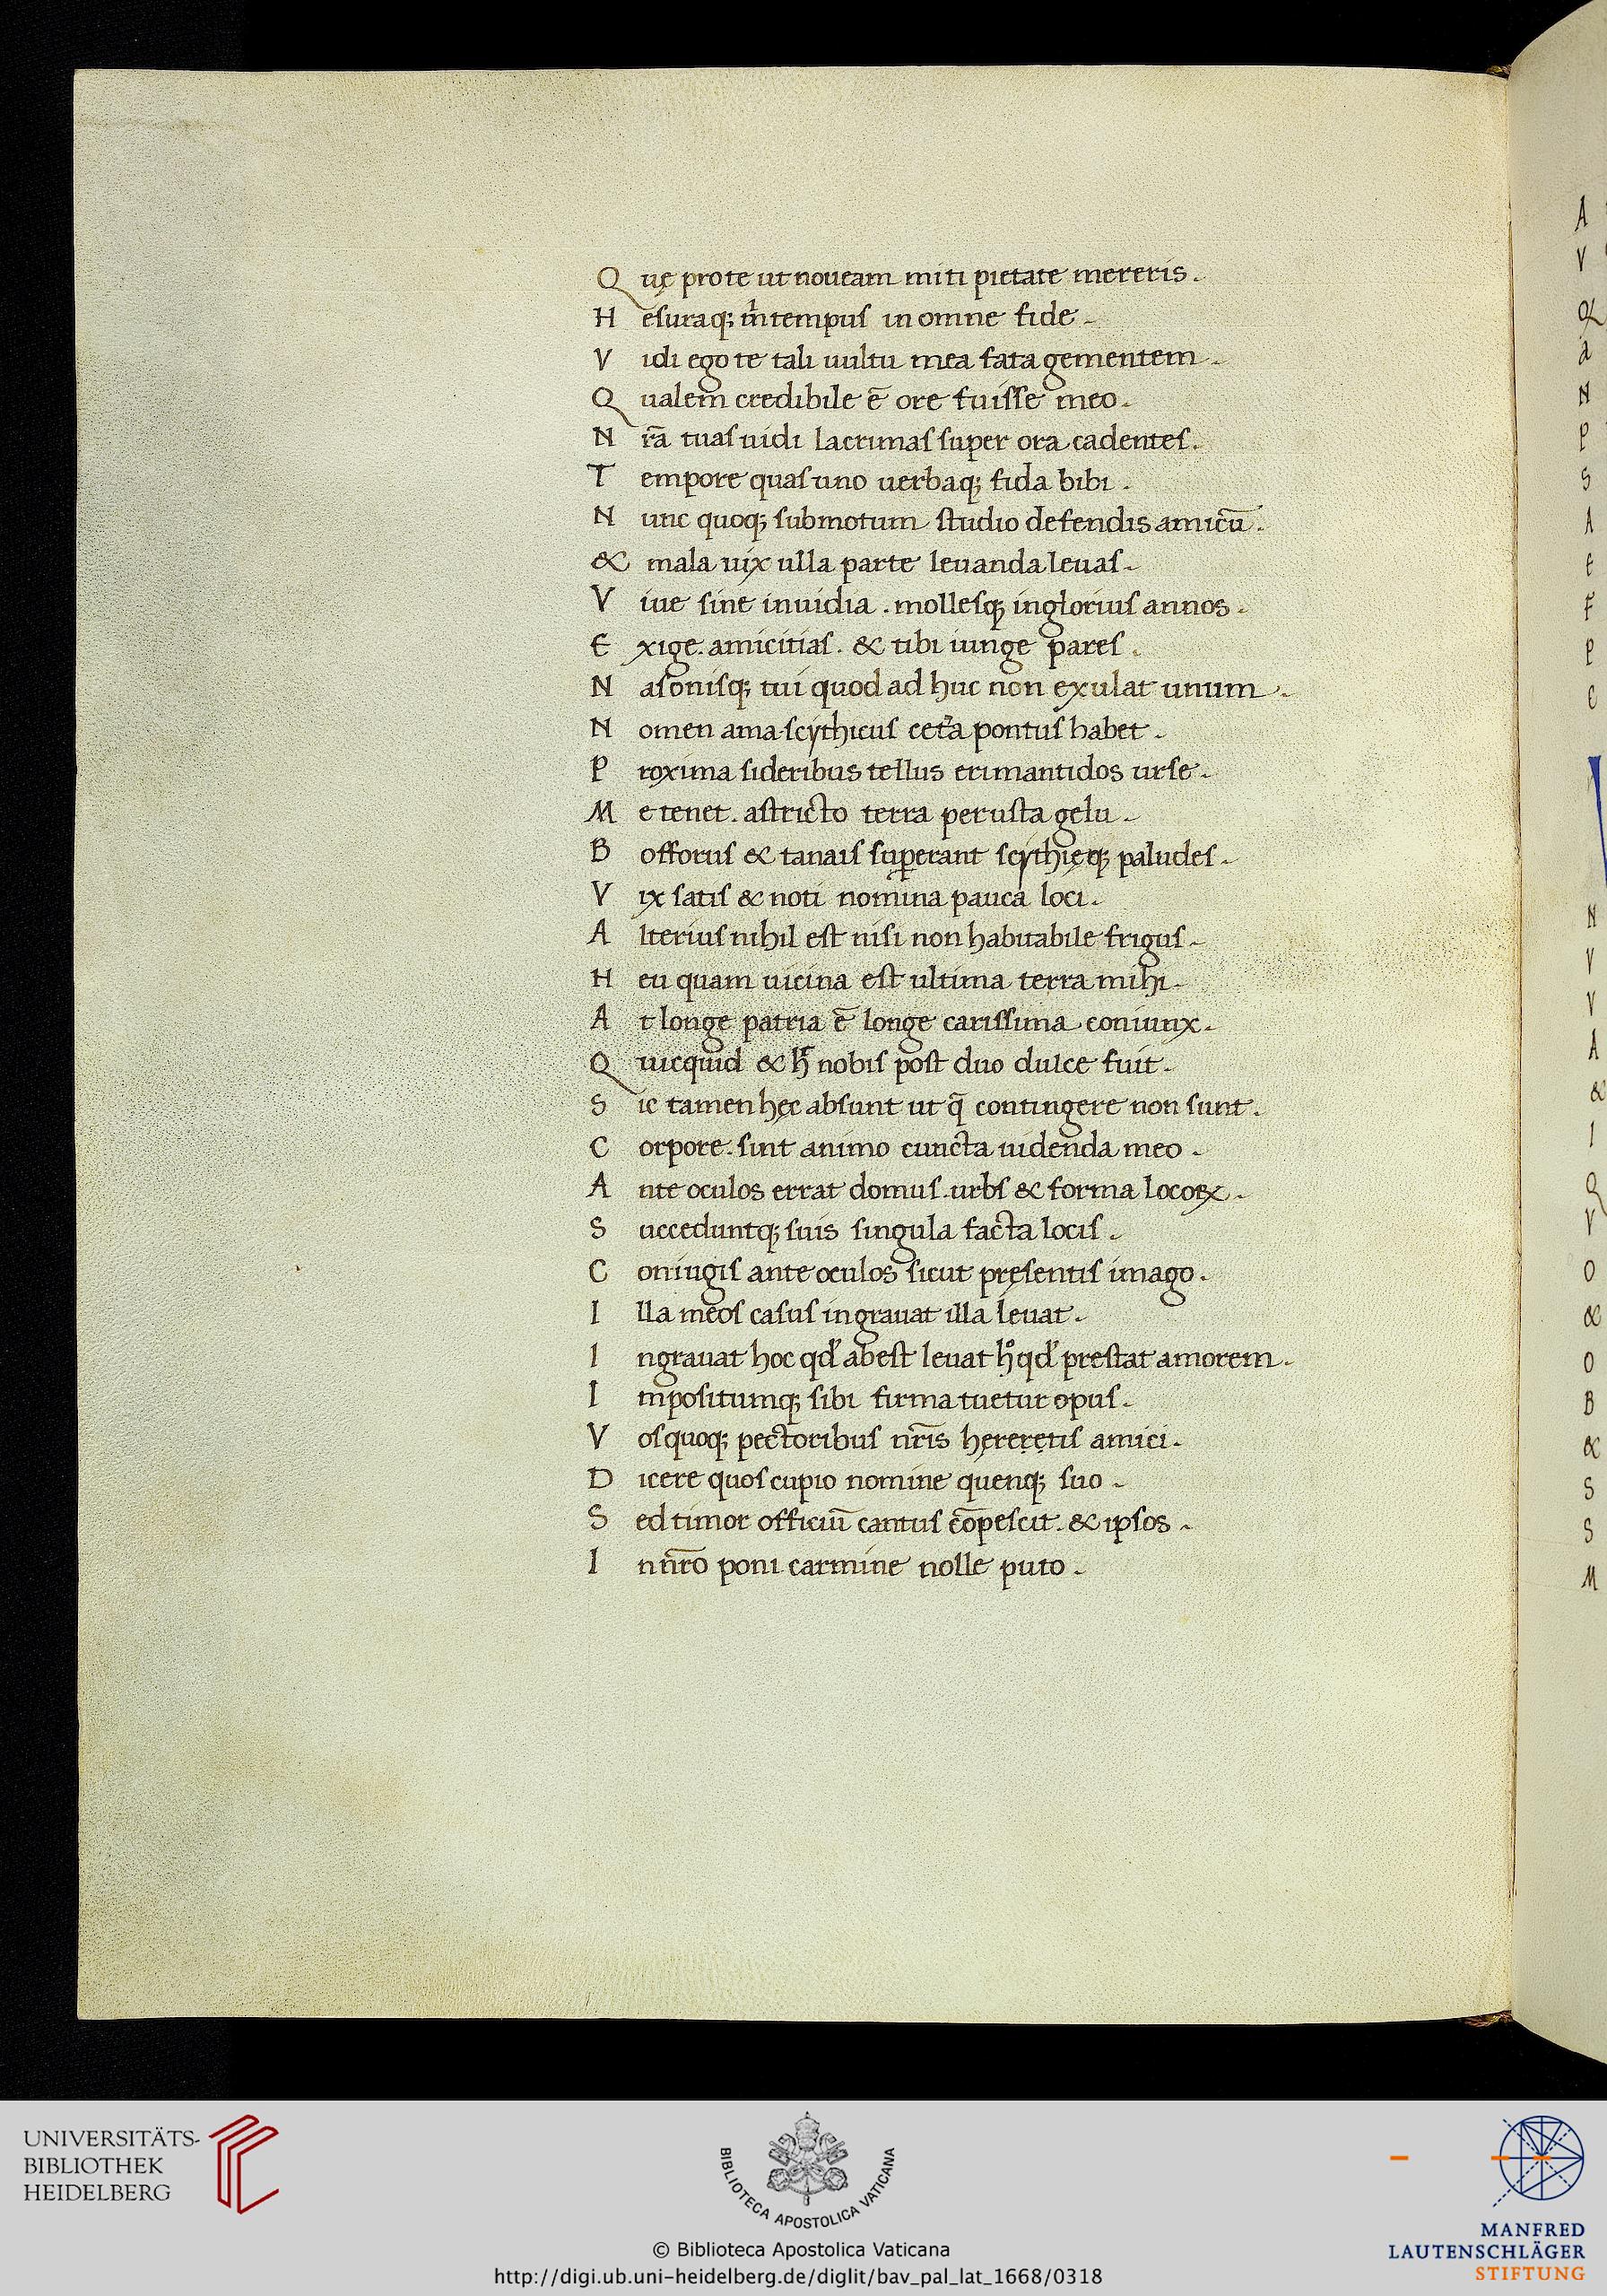 Que prote ut noueam miti pietate mereris.
Hęsuraq; m̃ tempus in omne fide.
Vidi ego te tali uultu mea fata gementem.
Qualem credibile ē ore fuisse meo.
Nr̃a tuas uidi lacrimas super ora cadentes.
Tempore quas uno uerbaq; fida bibi.
Nunc quoq; submotum studio defendis amicū.
& mala uix ulla parte leuanda leuas.
Viue sine inuidia. mollesq; inglorius annos.
Exige. amicitias. & tibi iunge pares.
Nasonisq; tui quod ad huc non exulat unum.
Nomen ama. scythicus cet̃a pontus habet.
Proxima sideribus tellus erimantidos urse.
Me tenet. astricto terra perusta gelu.
Bofforus & tanais suꝑerant scythięq; paludes.
Vix satis & noti nomina pauca loci.
Alterius nihil est nisi non habitabile frigus.
Heu quam uicina est ultima terra mihi.
At longe patria ē longe carissima coniunx.
Quicquid & h̄ nobis post duo dulce fuit.
Sic tamen hęc absunt ut q̄ contingere non sunt.
Corpore. sint animo cuncta uidenda meo.
Ante oculos errat domus. urbs & forma locoꝝ.
Succeduntq; suis singula facta locis.
Coniugis ante oculos sicut pręsentis imago.
Illa meos casus ingrauat illa leuat.
Ingrauat hoc qd' abest leuat hͦ qd' prestat amorem.
Impositumq; sibi firma tuetur opus.
Vos quoq; pectoribus nr̃is hęreretis amici.
Dicere quos cupio nomine quenq; suo.
Sed timor officiū cautus cōpescit. & ipsos.
In nr̃o poni carmine nolle puto.
A
V
Q
A
N
P
S
A
E
F
P
C
N
V
V
A
&
I
Q
V
O
&
O
B
&
S
S
M
UNIVERSITÄTS-
BIBLIOTHEK
HEIDELBERG
BIBLIOTECA APOSTOLICA VATICANA
© Biblioteca Apostolica Vaticana
http://digi.ub.uni-heidelberg.de/diglit/bav_pal_lat_1668/0318
MANFRED
LAUTENSCHLÄGER
STIFTUNG